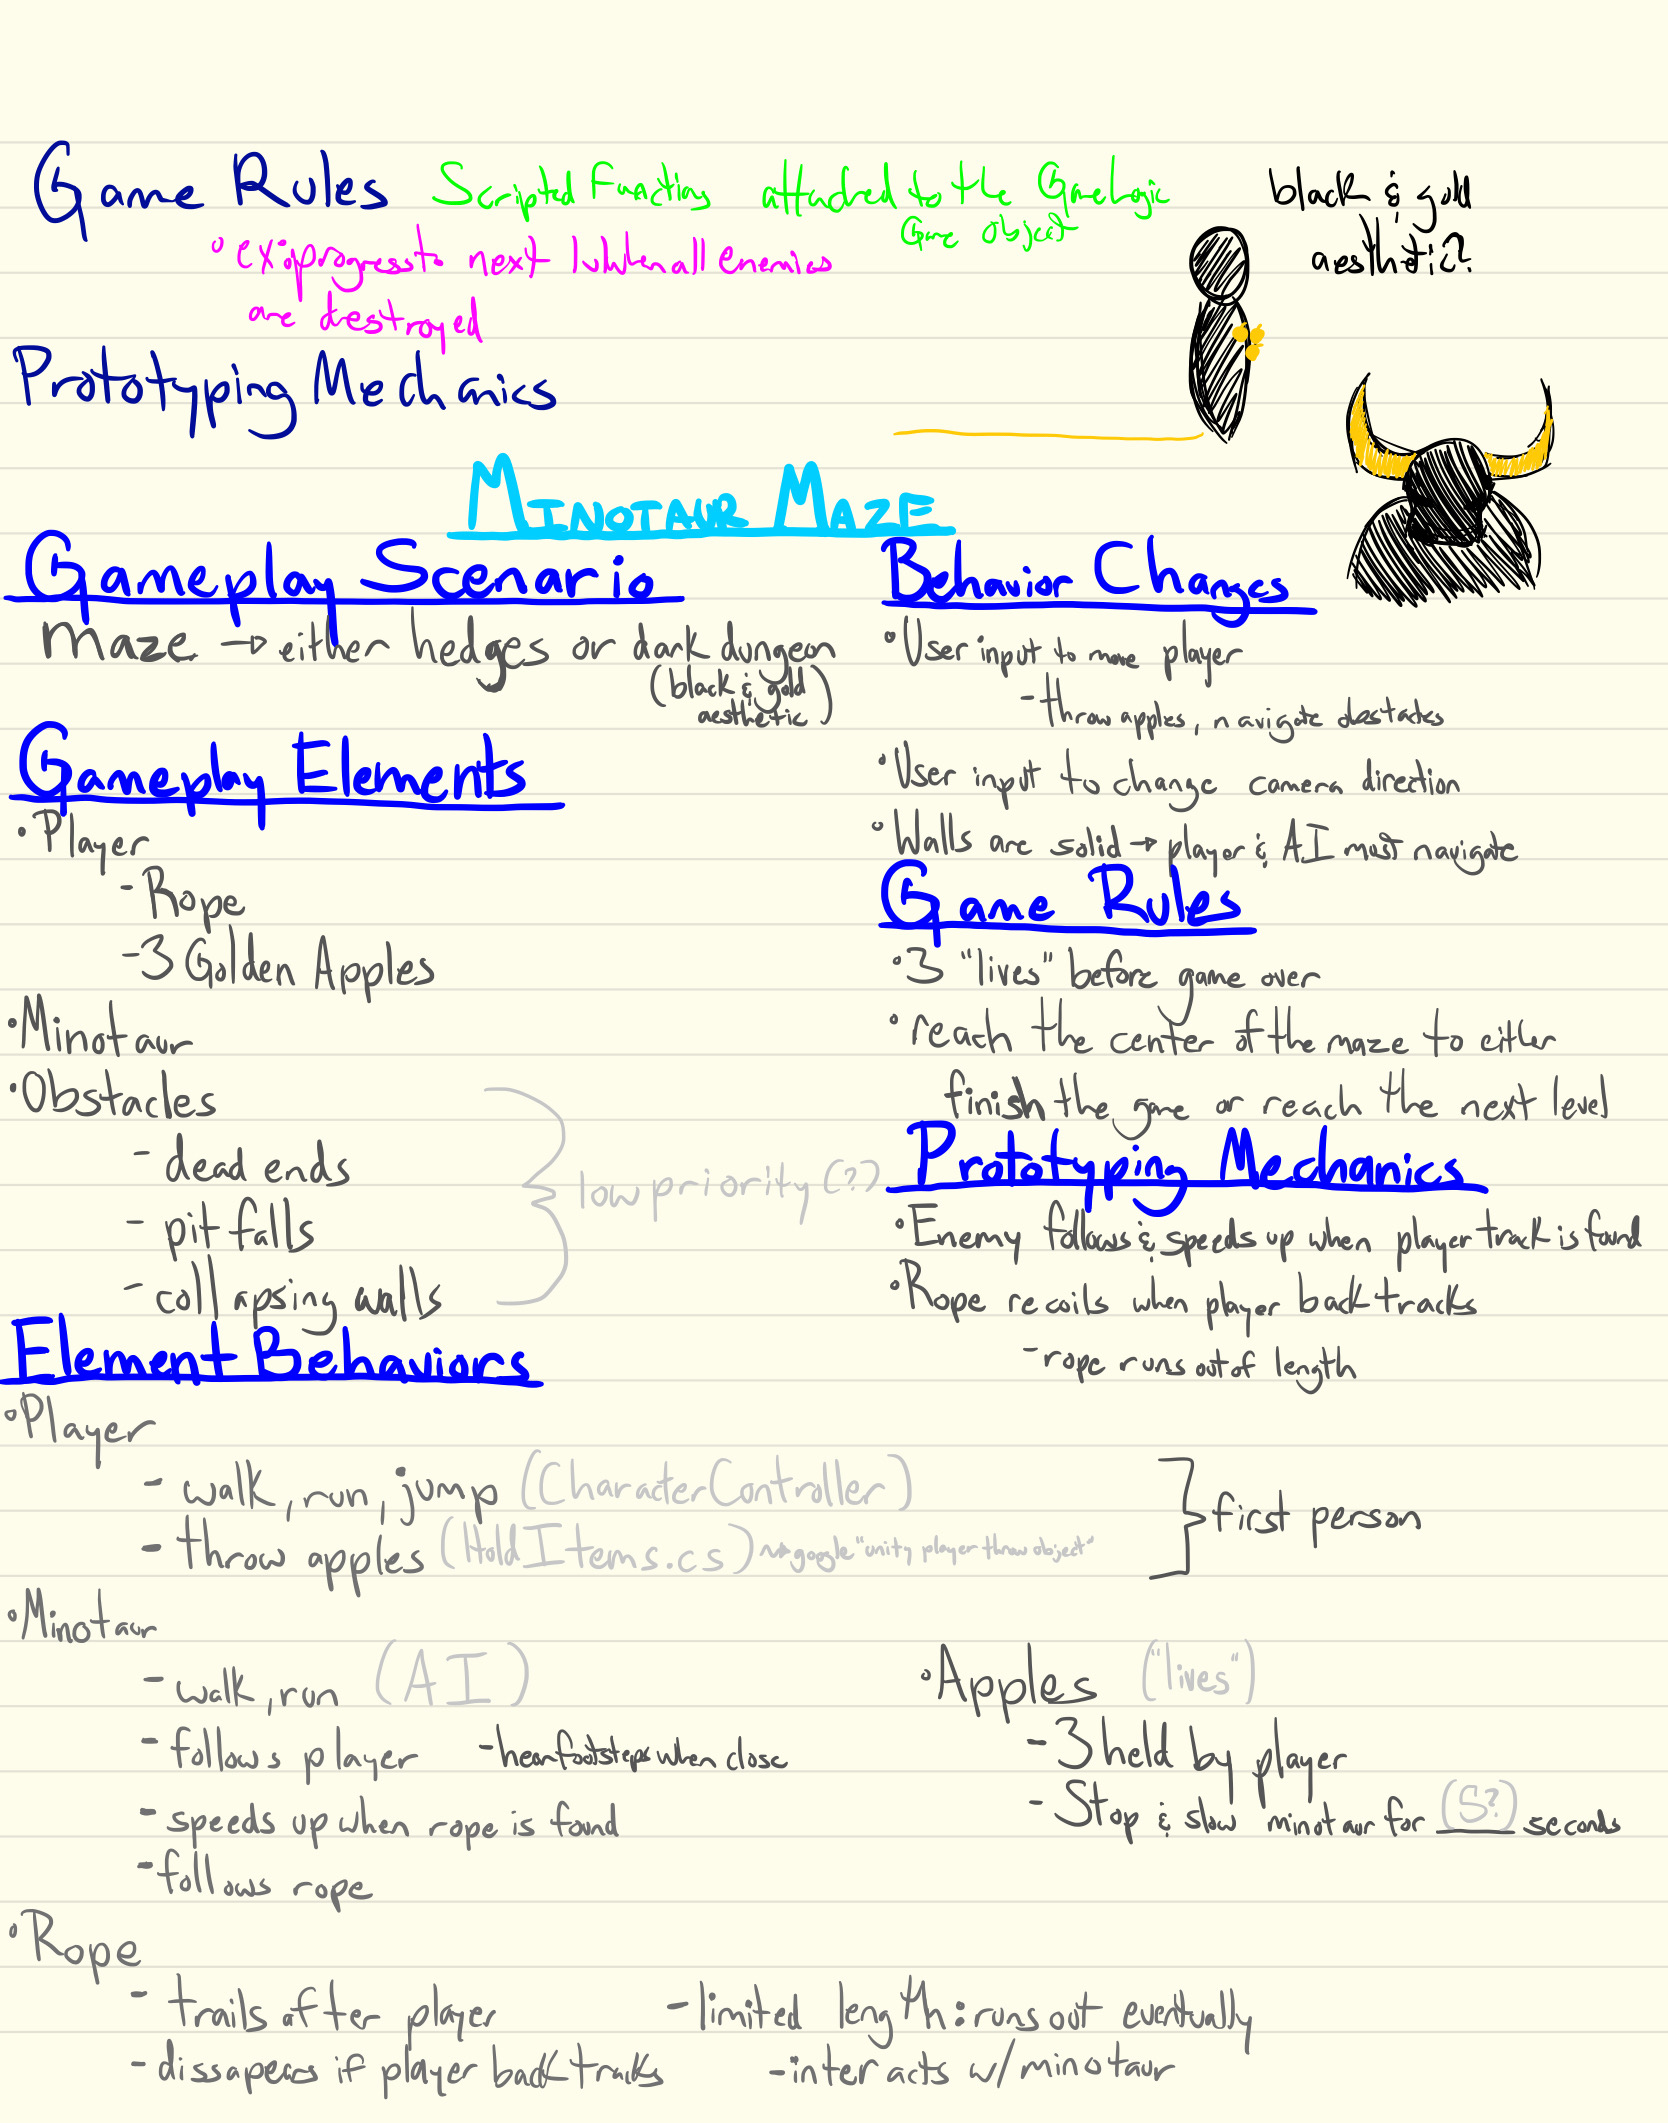 Game Rules Scripted Functions attached to the GameLogic
Game Object
black & gold
aesthetic?
• ex: progress to next lvl when all enemies
are destroyed
Prototyping Mechanics
MINOTAUR MAZE
Gameplay Scenario
maze → either hedges or dark dungeon
(black & gold
aesthetic)
Gameplay Elements
• Player
- Rope
- 3 Golden Apples
• Minotaur
• Obstacles
- dead ends
- pit falls
- collapsing walls
low priority (?)
Element Behaviors
• Player
- walk, run, jump (CharacterController)
- throw apples (HoldItems.cs) → google "unity player throw object"
first person
• Minotaur
- walk, run (AI)
- follows player - hear footsteps when close
- speeds up when rope is found
- follows rope
• Rope
- trails after player - limited length: runs out eventually
- dissapears if player backtracks - interacts w/ minotaur
Behavior Changes
• User input to move player
- throw apples, navigate obstacles
• User input to change camera direction
• Walls are solid → player & AI must navigate
Game Rules
• 3 "lives" before game over
• reach the center of the maze to either
finish the game or reach the next level
Prototyping Mechanics
• Enemy follows & speeds up when player track is found
• Rope recoils when player backtracks
- rope runs out of length
• Apples ("lives")
- 3 held by player
- Stop & slow minotaur for (5?) seconds